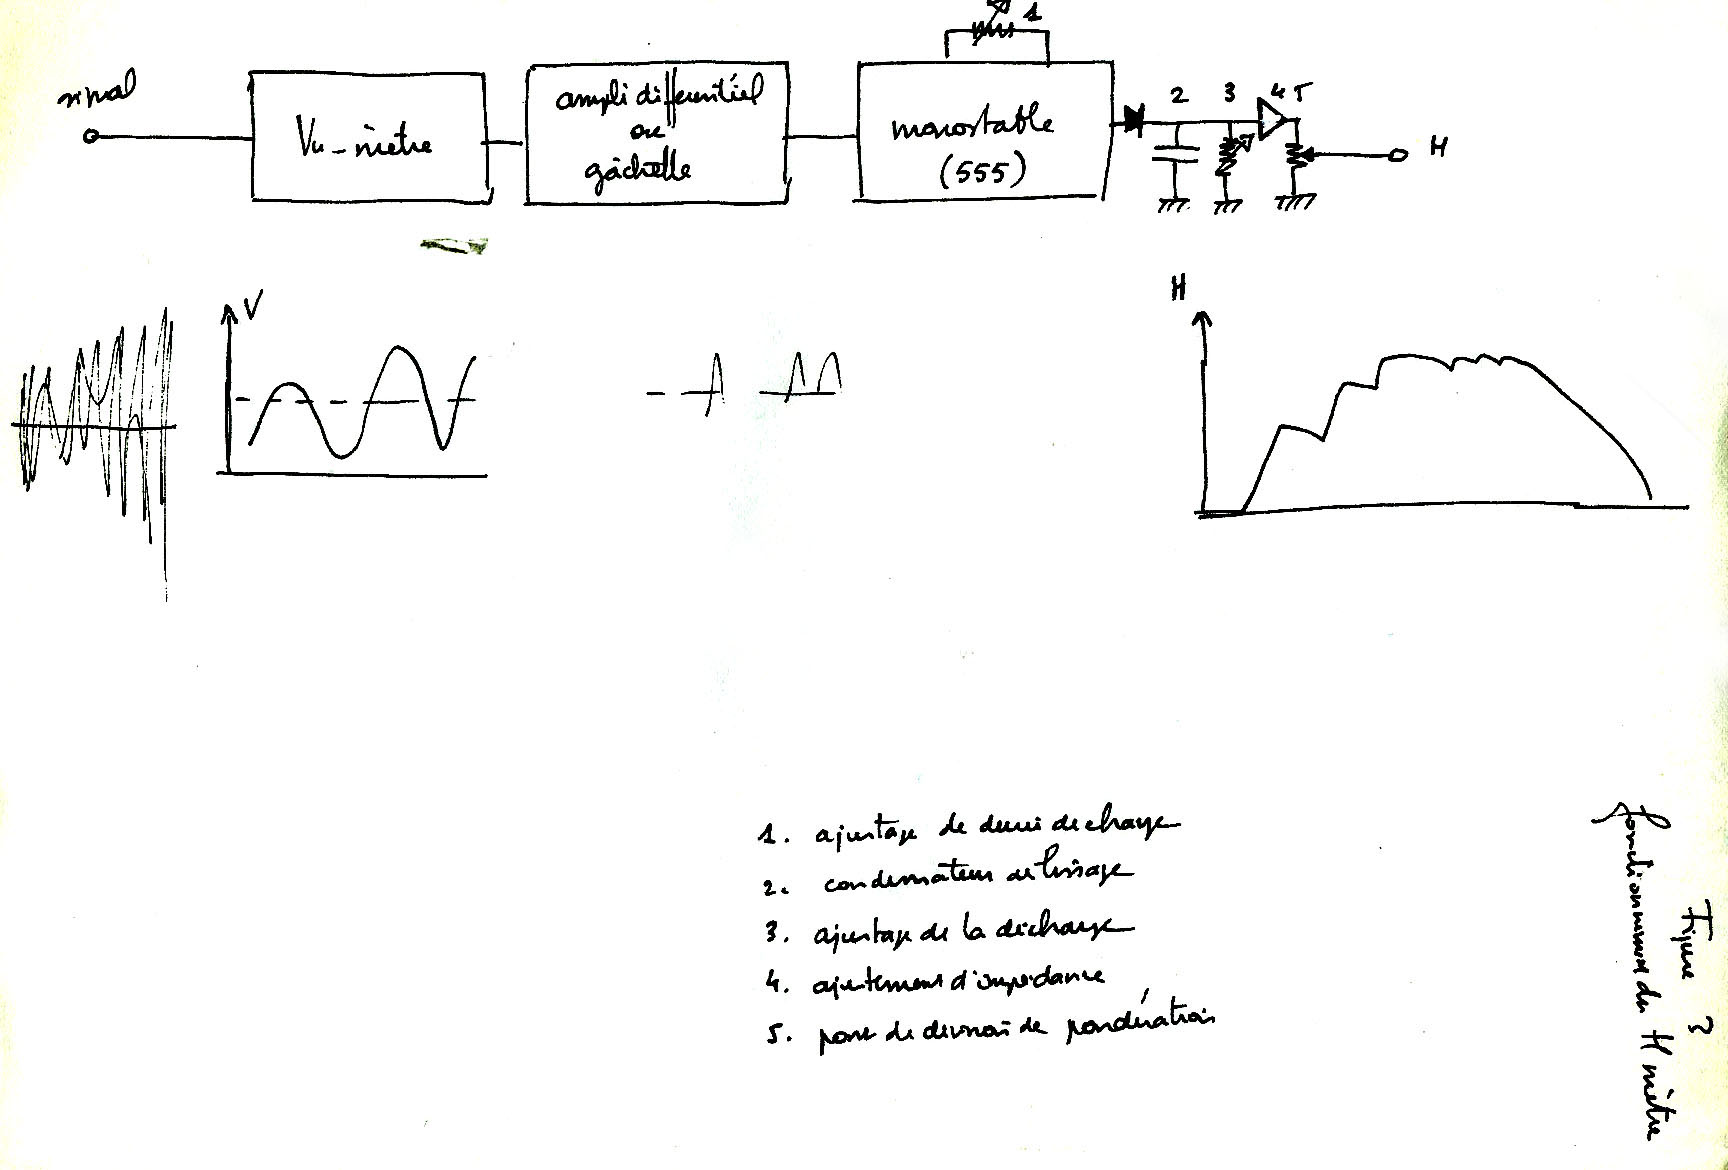 signal
Vu-mètre
ampli différentiel
ou
gâchette
1
monostable
(555)
2 3 4 5
H
V
H
1. ajustage de demi décharge
2. condensateur de lissage
3. ajustage de la décharge
4. ajustement d'impédance
5. pont de division de pondération
Figure 3
fonctionnement du H mètre